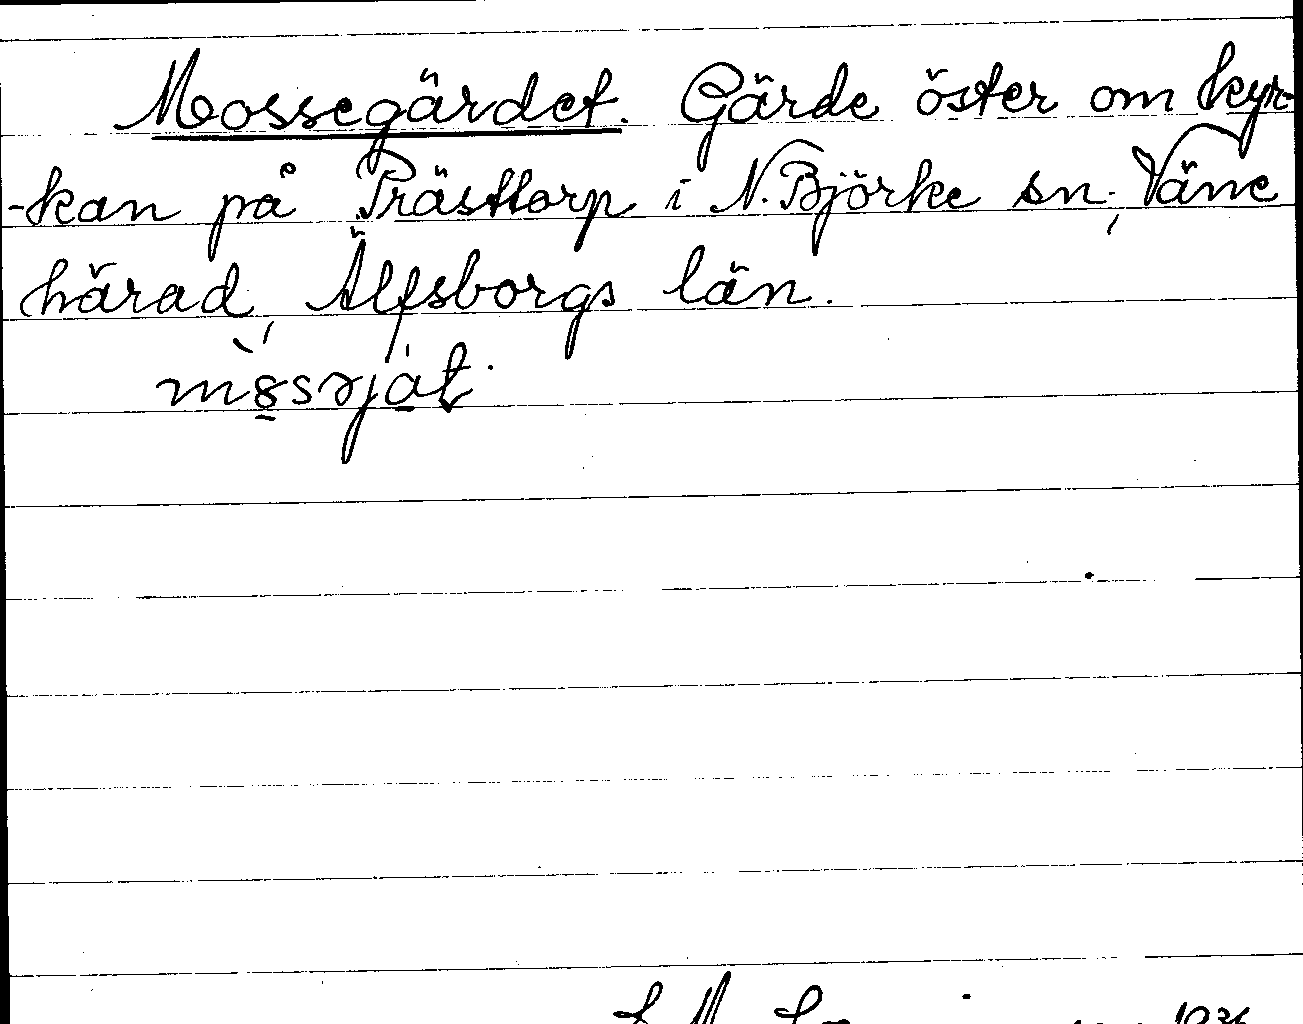 Mossegärdet. Gärde öster om kyr-
-kan på Prästtorp i N. Björke sn., Väne
härad, Älfsborgs län.